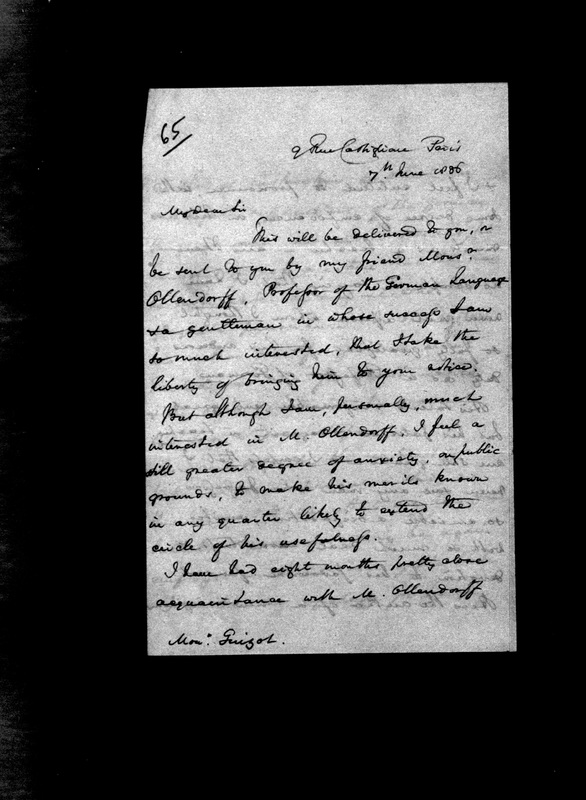 65
9 Rue Castiglione Paris
7th June 1836
My dear Sir
This will be delivered to you, or
be sent to you by my friend Monsr.
Ollendorff, Professor of the German Language
& a gentleman in whose success I am
so much interested, that I take the
liberty of bringing him to your notice.
But although I am, personally, much
interested in M. Ollendorff, I feel a
still greater degree of anxiety, on public
grounds, to make his merits known
in any quarter likely to extend the
circle of his usefulness.
I have had eight months pretty close
acquaintance with M. Ollendorff
Monr. Guizot.